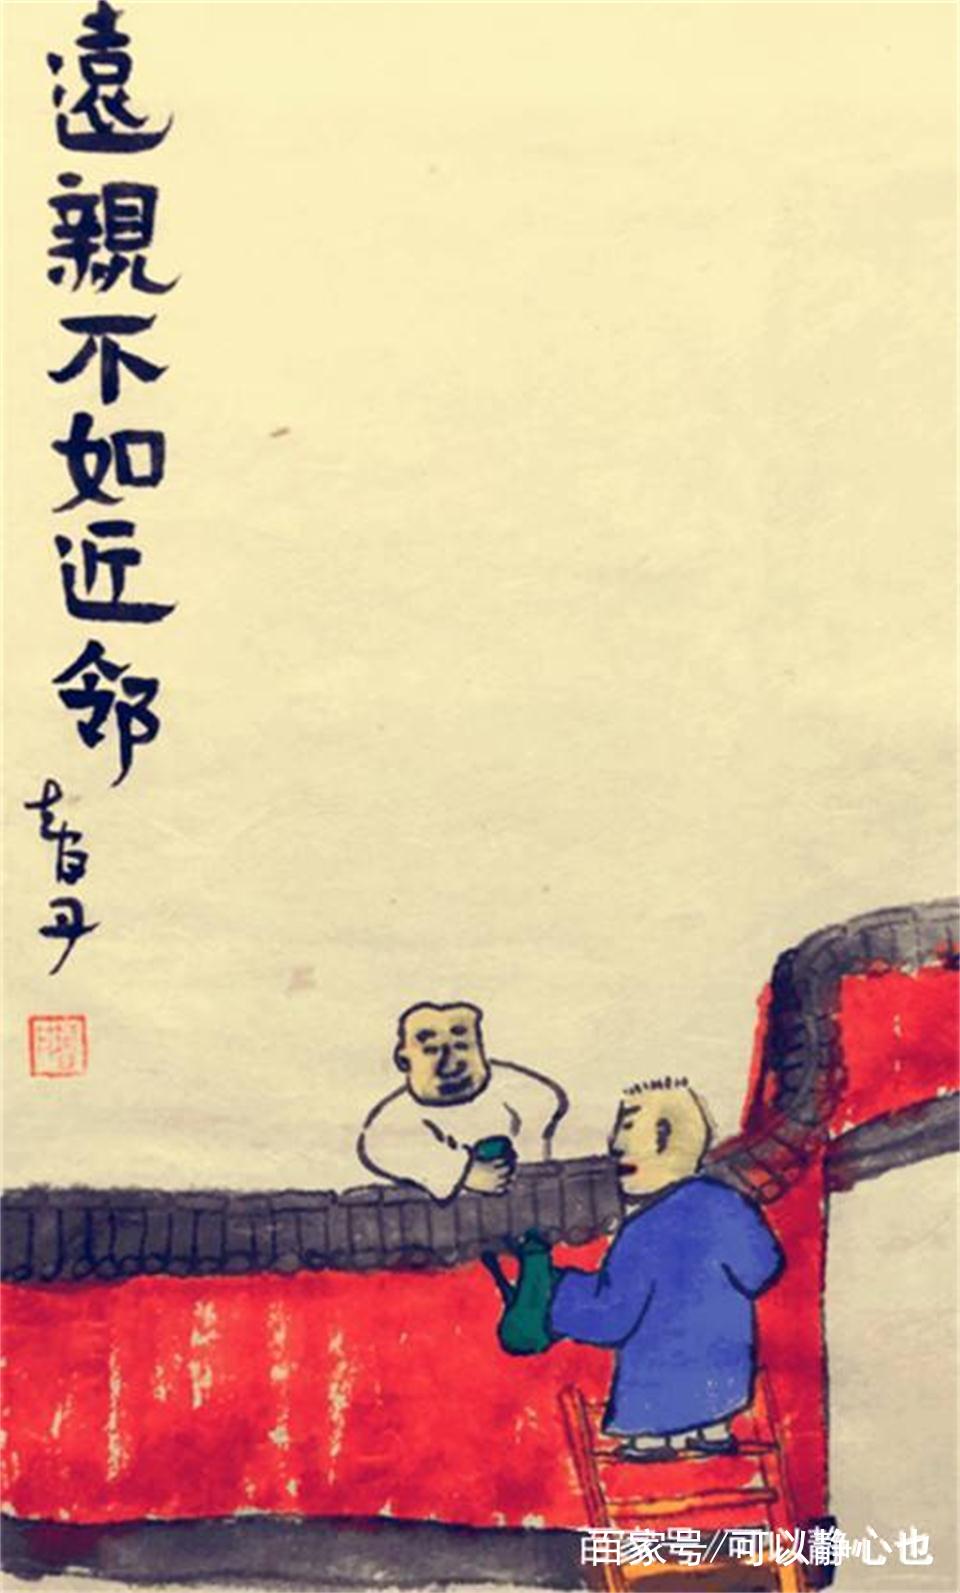 遠親不如近邻
百家号//可以静心也